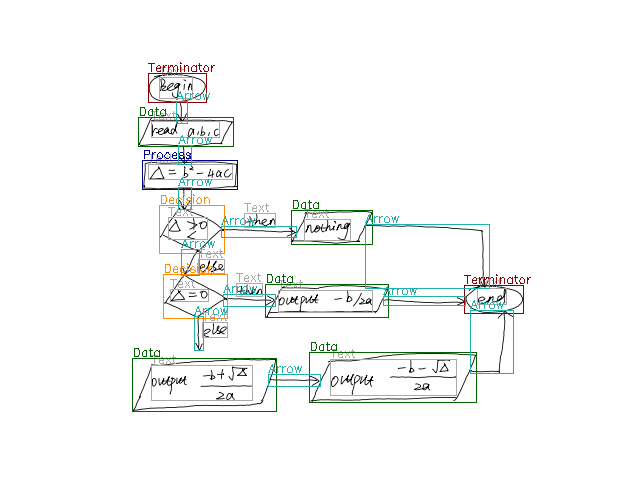 Terminator
Text
begin
Arrow
Data
Text
read a,b,c
Arrow
Process
Δ = b² - 4ac
Arrow
Decision
Text
Δ ≥0
Arrow
Text
then
Data
Text
nothing
Arrow
Arrow
Text
else
Decision
Text
Δ=0
Arrow
Text
then
Data
Text
output -b/2a
Arrow
Terminator
Text
end
Arrow
Arrow
Text
else
Data
Text
output -b+√Δ
2a
Arrow
Data
Text
output -b-√Δ
2a